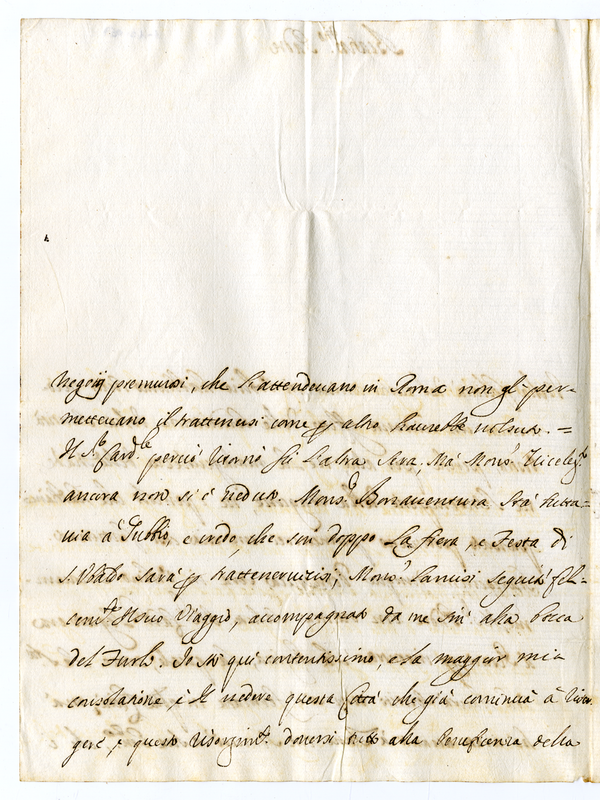 negozij premurosi, che l'attendevano in Roma non gl-per-
mettevano il trattenersi come p altro haurebbe voluto. =
Il S.r Card.le perciò ritornò fin l'altra sera, Mà Mons.r Viceleg.o
ancora non si è veduto. Mons.r Bonaventura stà tutta=
uia à Gubbio, e credo, che sin doppo La fiera, e Festa di
S. Vbaldo sarà p trattenervisi; Mons.r seguità feli-
cem.te Il suo Viaggio, accompagnato da me sin' alla bocca
del Furlo. Io stò quì contentissimo, e la maggior mia
consolatione, è Il vedere questa Città che già comincia à risor
gere, e questo risorgim.to doversi tutto alla beneficenza della